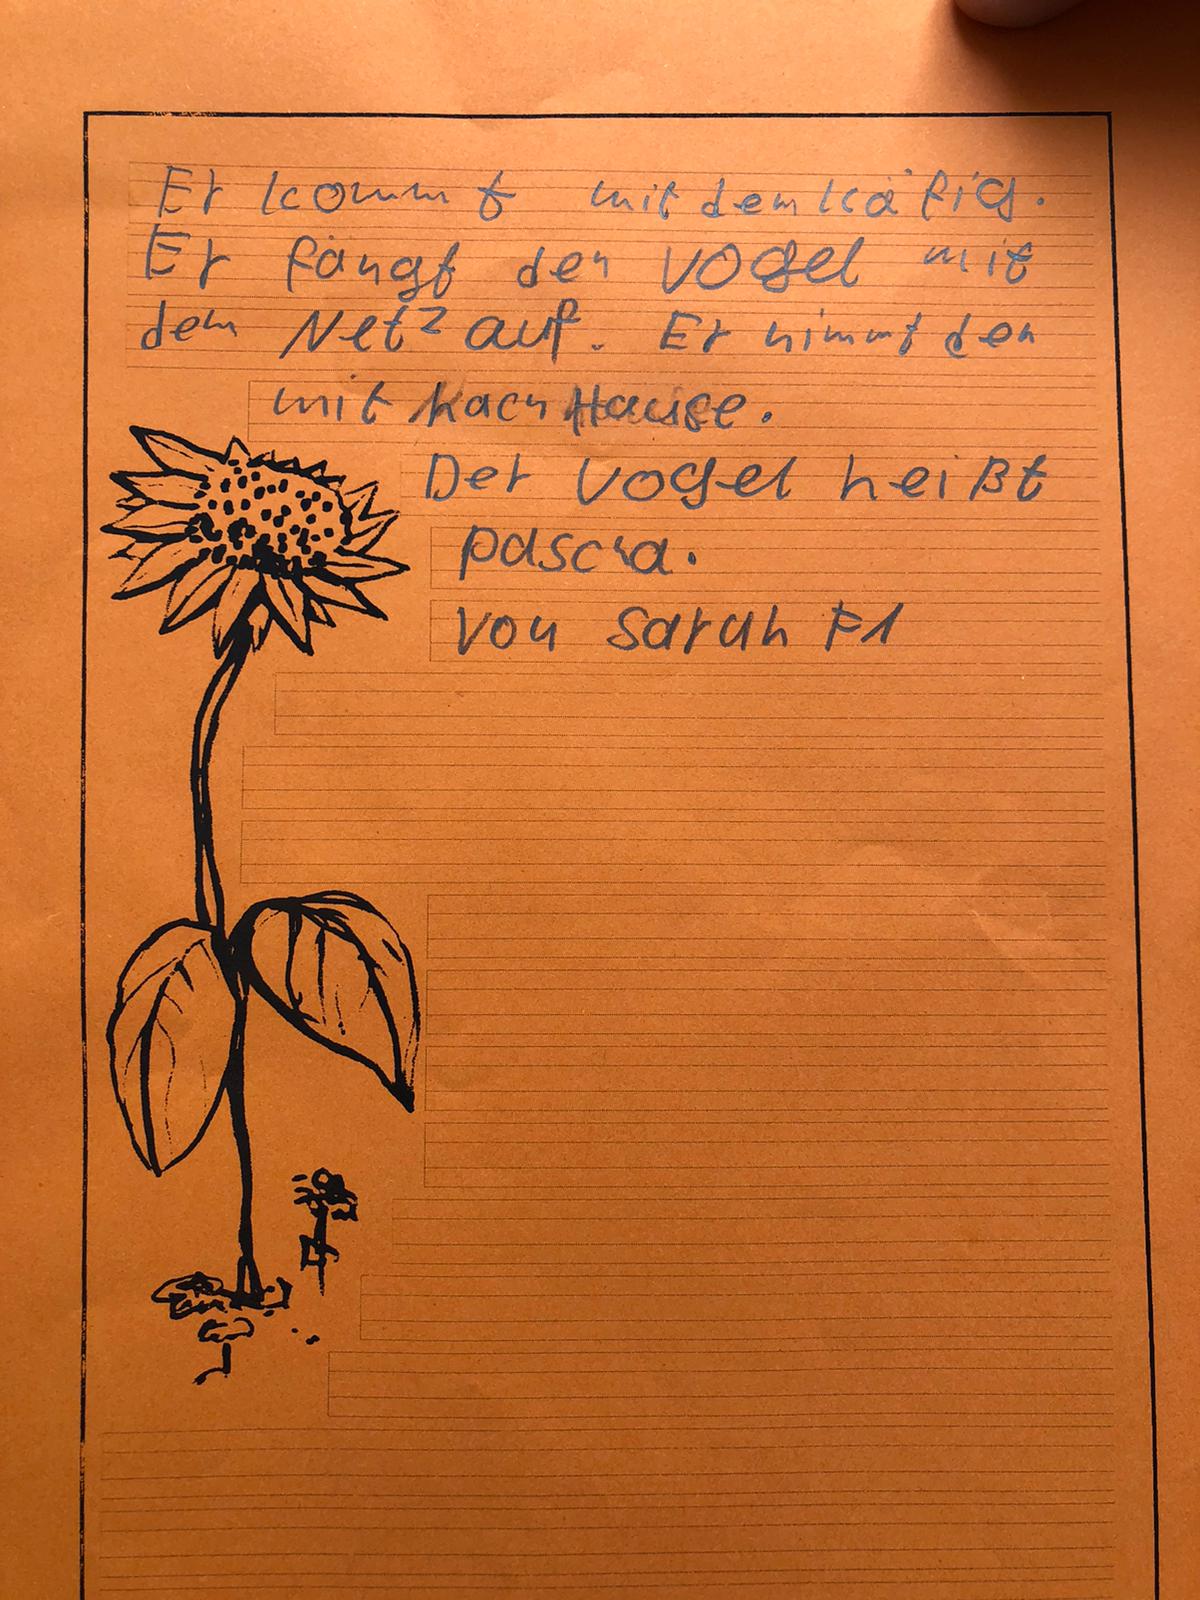 Er kommt mit dem käfig.
Er fängt den vogel mit
dem Netz auf. Er nimmt den
mit Nach Hause.
Der vogel heißt
pascha.
von Sarah F1